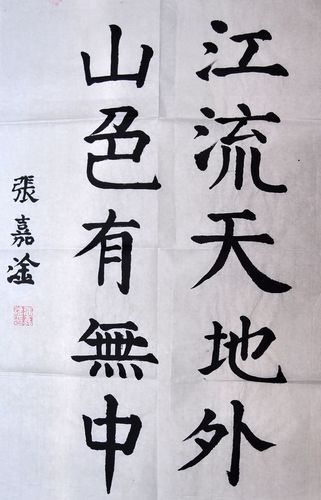 江流天地外
山色有無中
張嘉淦